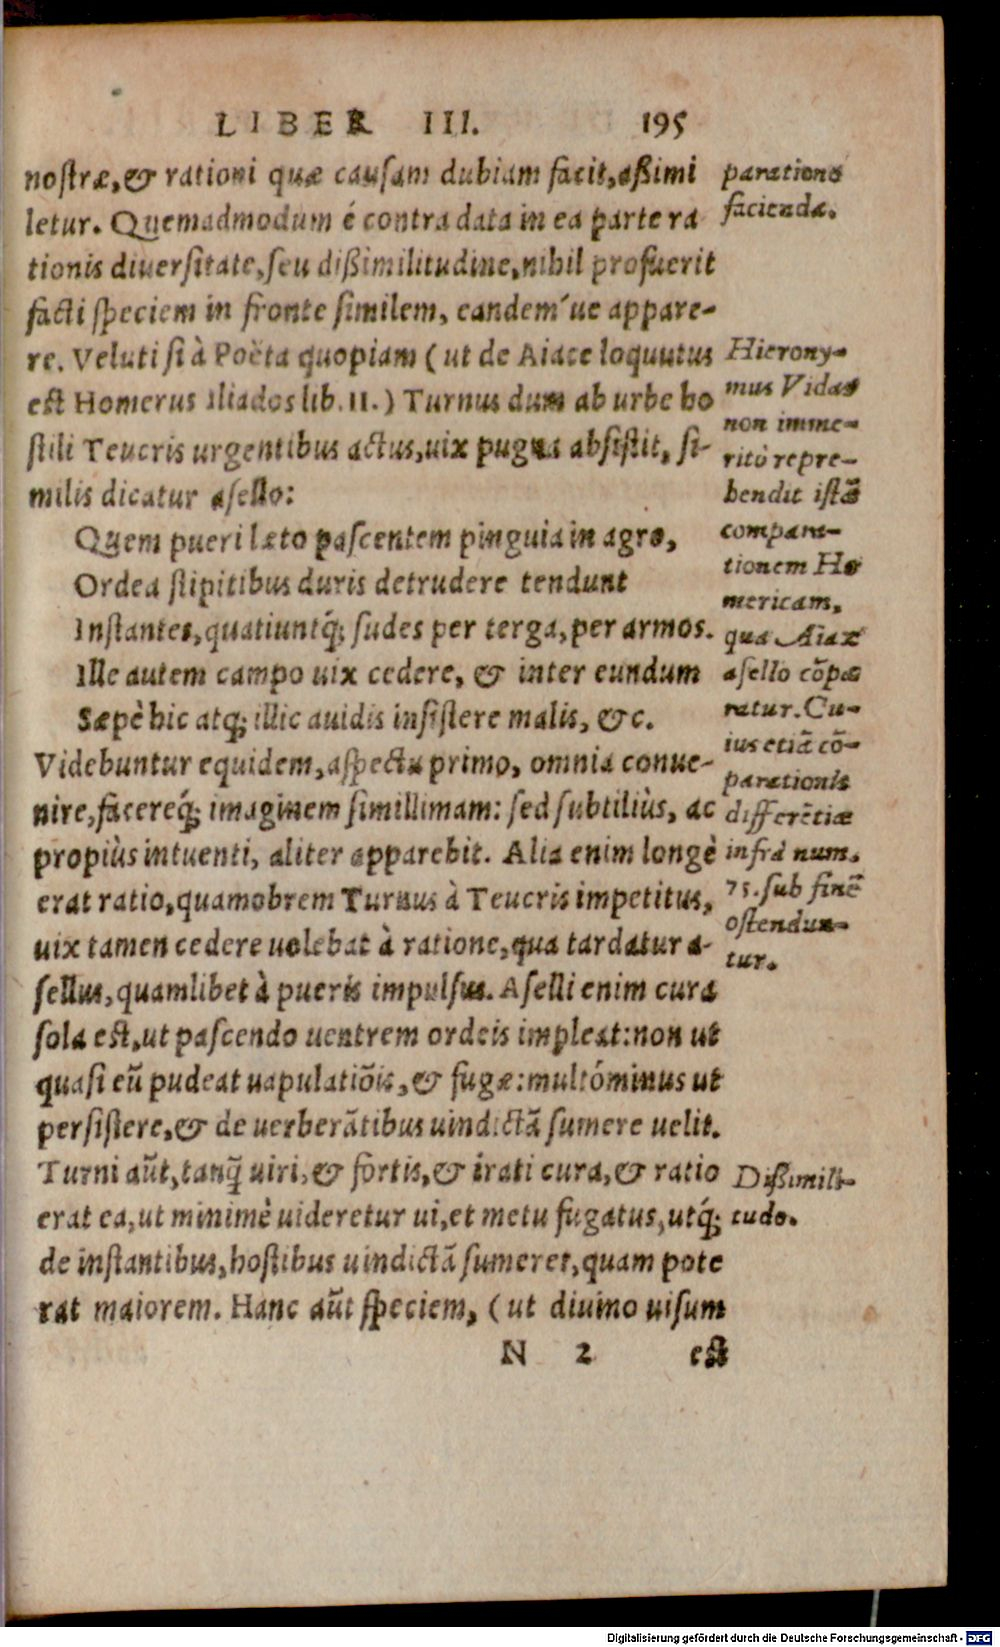 LIBER III. 195
nostræ, & rationi quæ causam dubiam facit, aßimi
letur. Quemadmodum é contra data in ea parte ra
tionis diuersitate, seu dißimilitudine, nihil profuerit
facti speciem in fronte similem, eandem´ue appare-
re. Veluti si à Poëta quopiam (ut de Aiace loquutus
est Homerus Iliados lib. 11.) Turnus dum ab urbe ho
stili Teucris urgentibus actus, uix pugna absistit, si-
milis dicatur asello:
Quem pueri læto pascentem pinguia in agro,
Ordea stipitibus duris detrudere tendunt
Instantes, quatiuntq́; sudes per terga, per armos.
Ille autem campo uix cedere, & inter eundum
Sæpè hic atq; illic auidis insistere malis, &c.
Videbuntur equidem, aspectu primo, omnia conue-
nire, facereq́; imaginem simillimam: sed subtiliùs, ac
propiùs intuenti, aliter apparebit. Alia enim longè
erat ratio, quamobrem Turnus à Teucris impetitus,
uix tamen cedere uolebat à ratione, qua tardatur a-
sellus, quamlibet à pueris impulsus. Aselli enim cura
sola est, ut pascendo uentrem ordeis impleat: non ut
quasi eũ pudeat uapulatiõis, & fugæ: multóminus ut
persistere, & de uerberãtibus uindictã sumere uelit.
Turni aũt, tanq̃ uiri, & fortis, & irati cura, & ratio
erat ea, ut minimè uideretur ui, et metu fugatus, utq́;
de instantibus, hostibus uindictã sumeret, quam pote
rat maiorem. Hanc aũt speciem, (ut diuino uisum
N 2 est
parationo
facienda.
Hierony-
mus Vidas
non imme-
ritò repre-
hendit istã
compara-
tionem Ho
mericam,
qua Aiax
asello cõpa
ratur. Cu-
ius etiã cõ-
parationis
differẽtiæ
infrà num.
75. sub finẽ
ostendun-
tur.
Dißimili-
tudo.
Digitalisierung gefördert durch die Deutsche Forschungsgemeinschaft - DFG